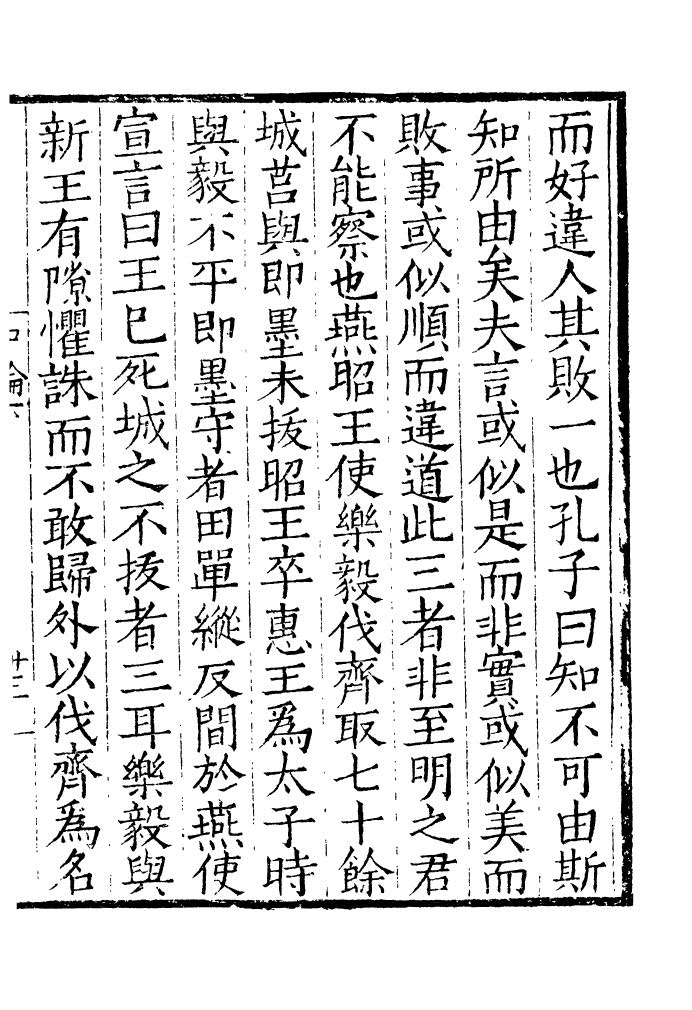 而好違人其敗一也孔子曰知不可由斯
知所由矣夫言或似是而非實或似美而
敗事或似順而違道此三者非至明之君
不能察也燕昭王使樂毅伐齊取七十餘
城莒與即墨未拔昭王卒惠王爲太子時
與毅不平即墨守者田單縱反間於燕使
宣言曰王已死城之不拔者三耳樂毅與
新王有隙懼誅而不敢歸外以伐齊爲名